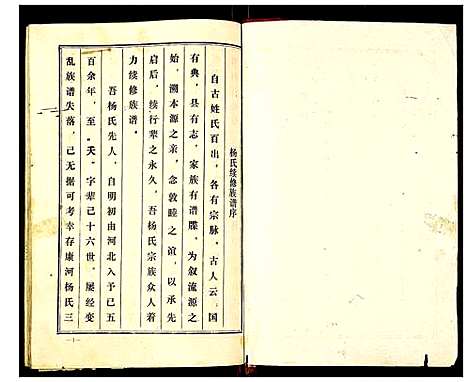 杨氏续修族谱序
自古姓氏百出，各有宗脉，古人云，国
有典，县有志，家族有谱牒，为叙流源之
始，溯本源之亲，念敦睦之谊，以承先
启后，续行辈之永久，吾杨氏宗族众人着
力续修族谱。
吾杨氏先人，自明初由河北入予已五
百余年，至“天”字辈已十六世，屡经变
乱族谱失落，已无据可考幸存康河杨氏三
-1-